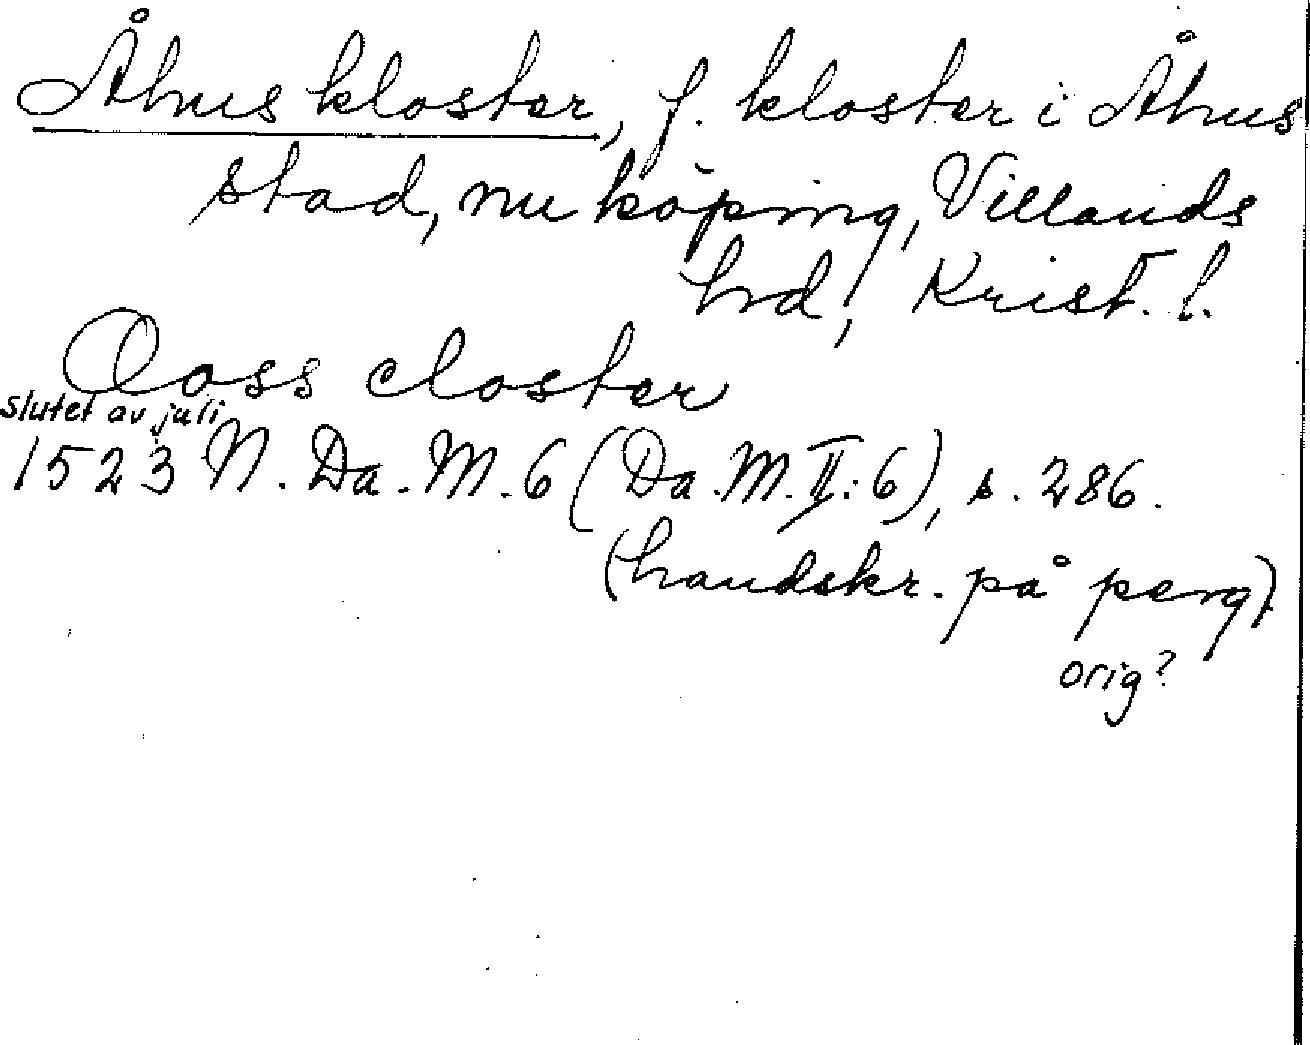 Åhus kloster, f. kloster i Åhus
stad, nu köping, Villands
hd, Krist. l.
Ooss closter
slutet av juli
1523 N. Da. M. 6 (Da. M. II: 6), s. 286.
(handskr. på perg)
orig?